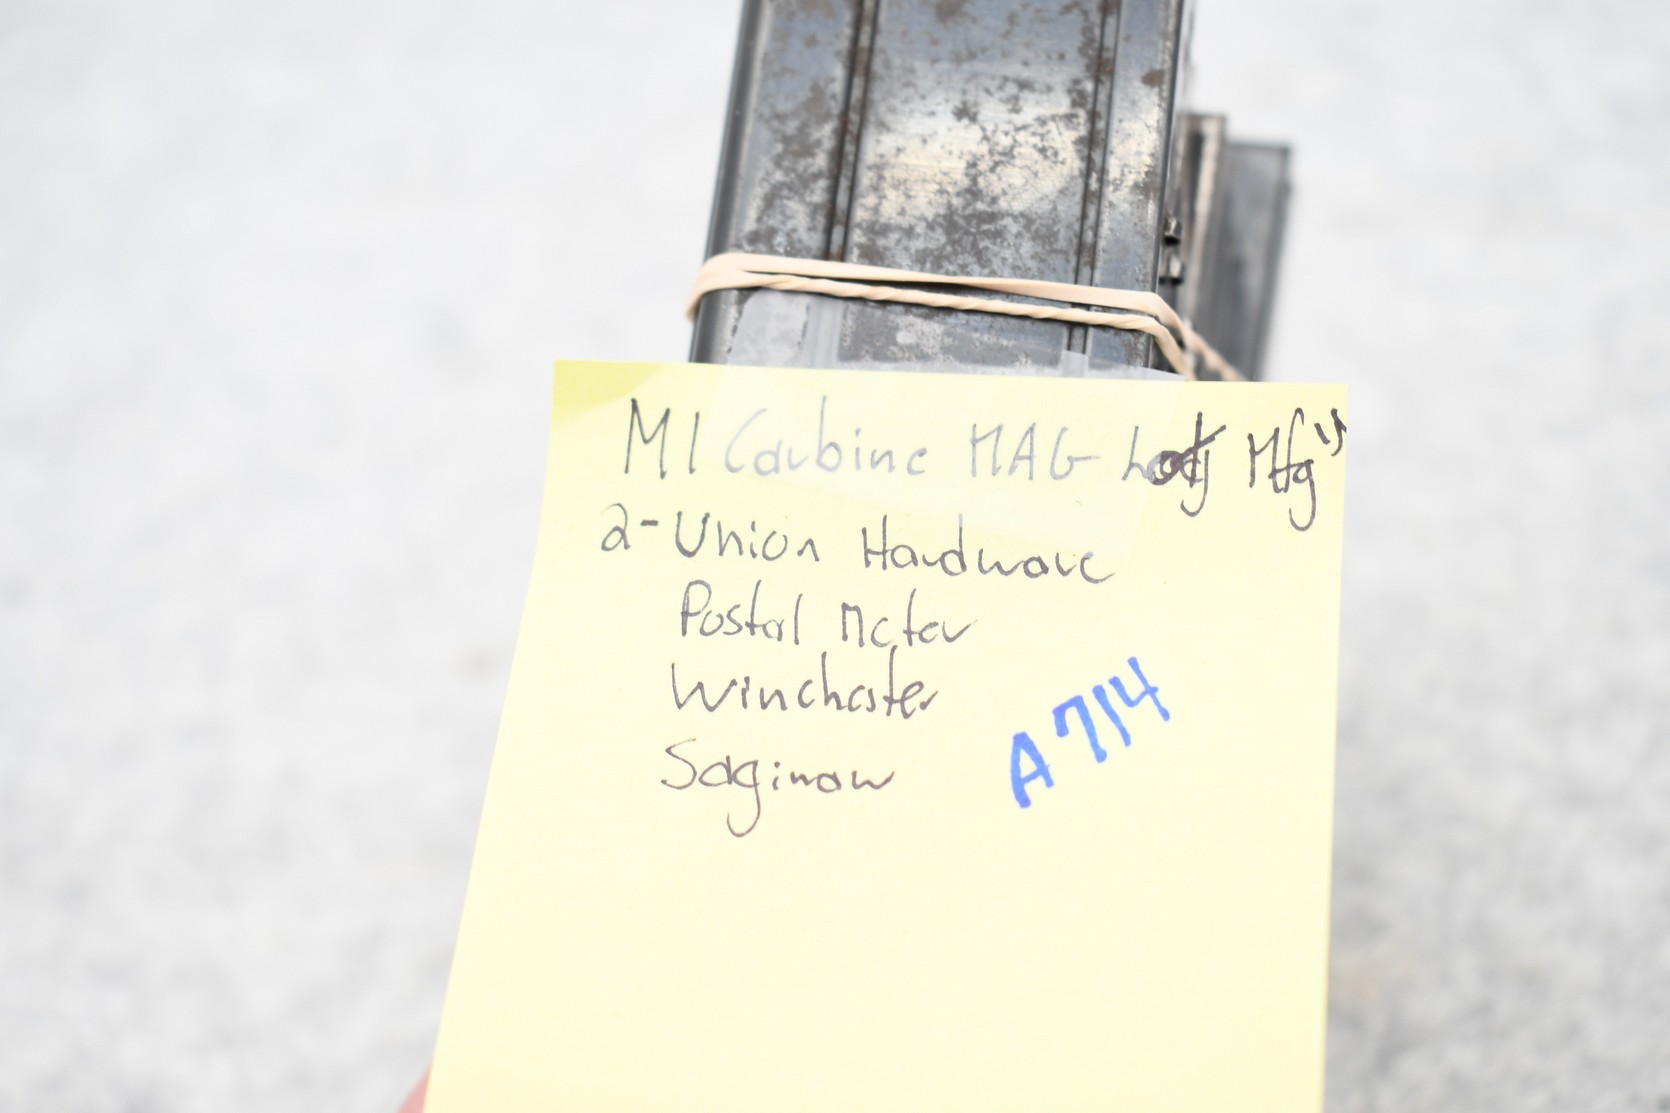 M1 Carbine MAG Mfg's
2-Union Hardware
Postal Meter
Winchester
Saginaw
A714